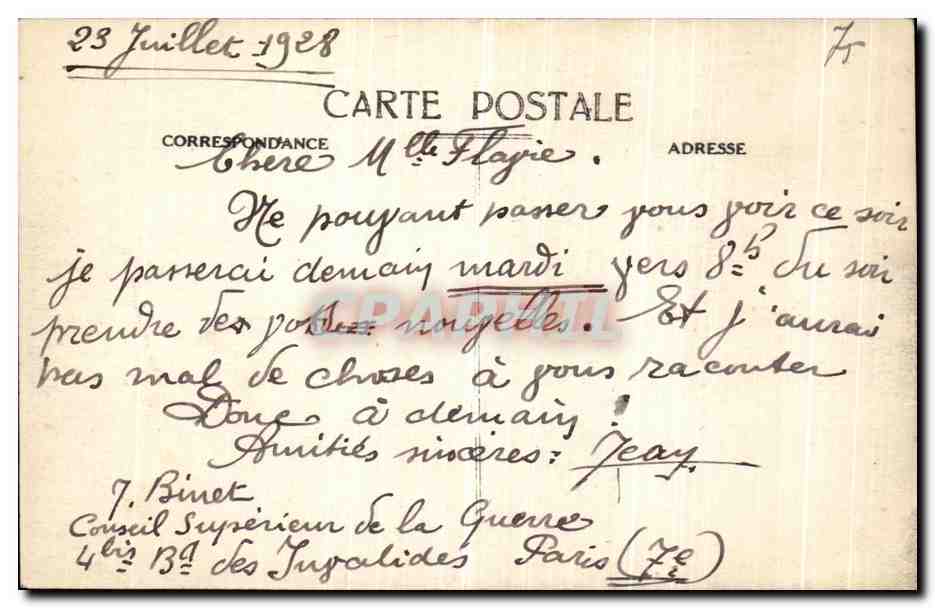 23 Juillet 1928
75
CARTE POSTALE
CORRESPONDANCE
ADRESSE
Chere Mlle Flavie.
Ne pouvant passer vous voir ce soir
je passerai demain mardi vers 8h du soir
prendre de vos nouvelles. Et j'aurai
pas mal de choses à vous raconter
Donc à demain !
Amitiés sincères : Jean
J. Binet
Conseil Supérieur de la Guerre
4bis Bd des Invalides Paris (7e)
CPARAMA